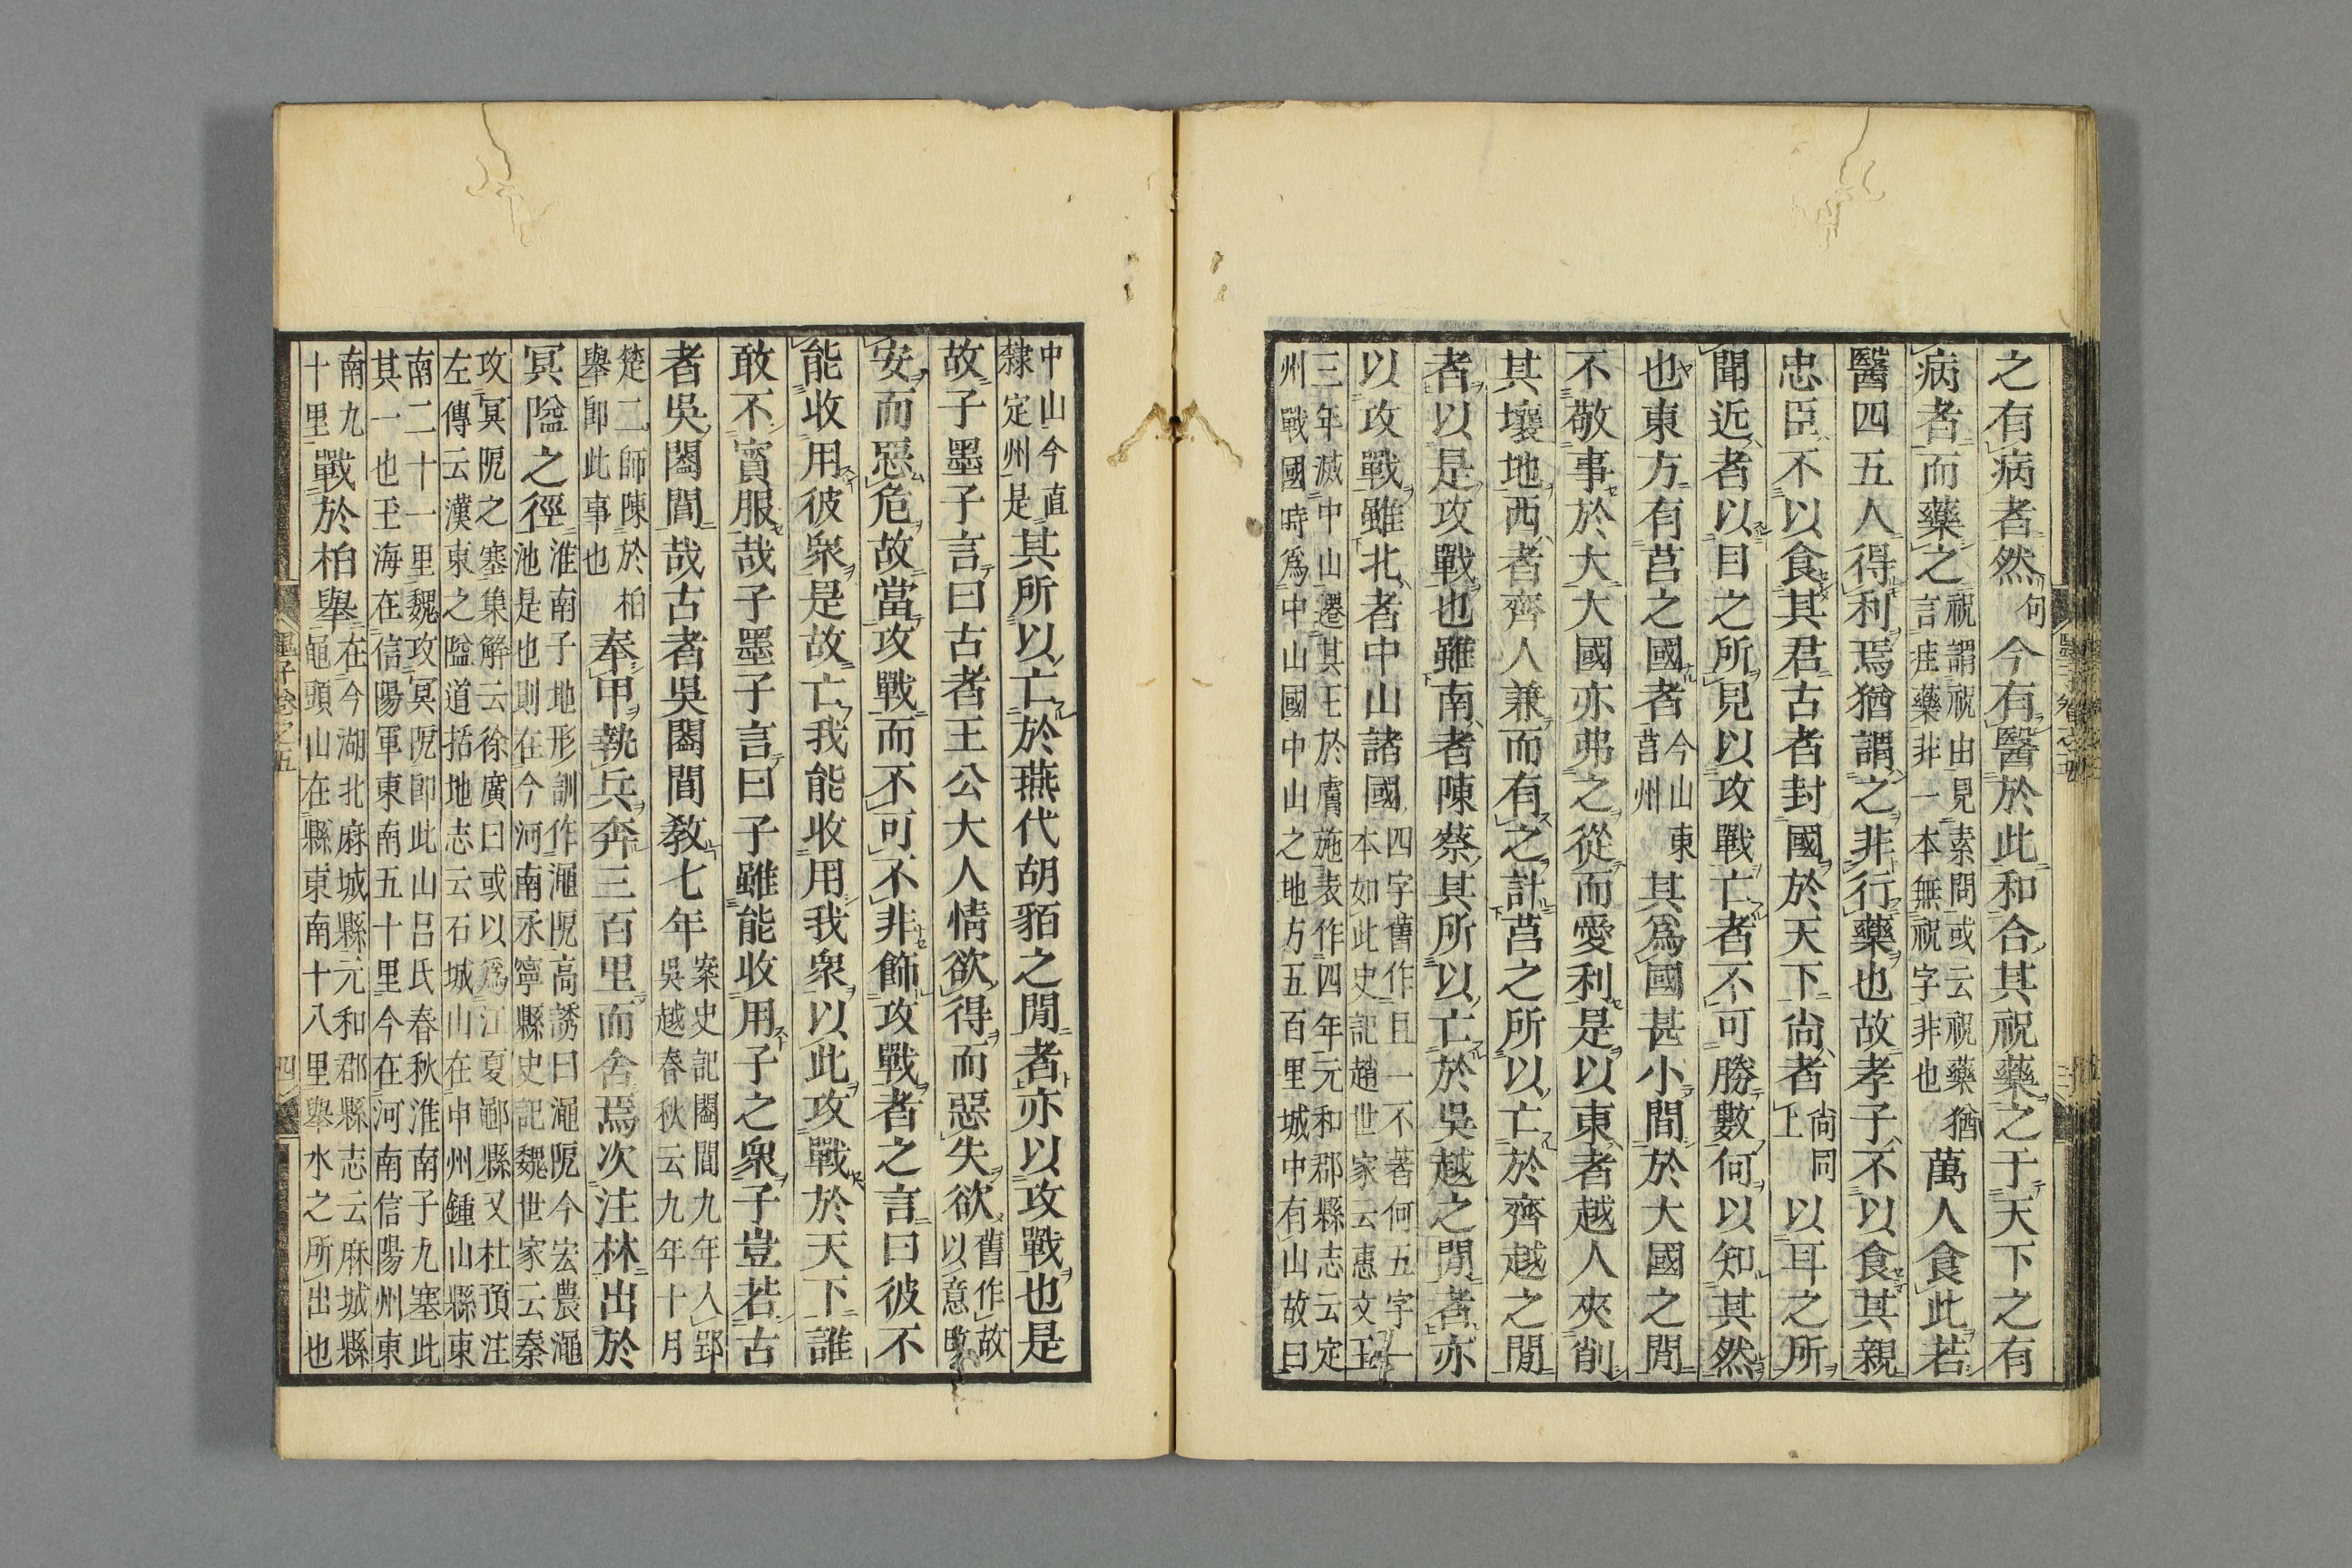 之有病者然句今有醫於此和合其祝藥之于天下之有
病者而藥之祝謂祝由見素問或云祝藥猶言疰藥非一本無祝字非也萬人食此若
醫四五人得利焉猶謂之非行藥也故孝子不以食其親
忠臣不以食其君古者封國於天下尙者尙同上以耳之所
聞近者以目之所見以攻戰亡者不可勝數何以知其然
也東方有莒之國者今山東莒州其爲國甚小閒於大國之閒
不敬事於大大國亦弗之從而愛利是以東者越人夾削
其壤地西者齊人兼而有之計莒之所以亡於齊越之閒
者以是攻戰也雖南者陳蔡其所以亡於吳越之閒者亦
以攻戰雖北者中山諸國四字舊作且一不著何五字一本如此史記趙世家云惠文王
三年滅中山遷其王於膚施表作四年元和郡縣志云定
州戰國時爲中山國中山之地方五百里城中有山故曰
中山今直隸定州是其所以亡於燕代胡貊之閒者亦以攻戰也是
故子墨子言曰古者王公大人情欲得而惡失欲舊作故以意改
安而惡危故當攻戰而不可不非飾攻戰者之言曰彼不
能收用彼衆是故亡我能收用我衆以此攻戰於天下誰
敢不賓服哉子墨子言曰子雖能收用子之衆子豈若古
者吳闔閭哉古者吳闔閭敎七年案史記闔閭九年入郢吳越春秋云九年十月
楚二師陳於柏舉卽此事也奉甲執兵奔三百里而舍焉次注林出於
冥隘之徑淮南子地形訓作澠阸高誘曰澠阸今宏農澠池是也則在今河南永寧縣史記魏世家云秦
攻冥阸之塞集解云徐廣曰或以爲江夏鄳縣又杜預注
左傳云漢東之隘道括地志云石城山在申州鍾山縣東
南二十一里魏攻冥阸卽此山呂氏春秋淮南子九塞此
其一也玉海在信陽軍東南五十里今在河南信陽州東
南九十里戰於柏舉在今湖北麻城縣元和郡縣志云麻城縣龜頭山在縣東南十八里舉水之所出也
墨子卷之五
四